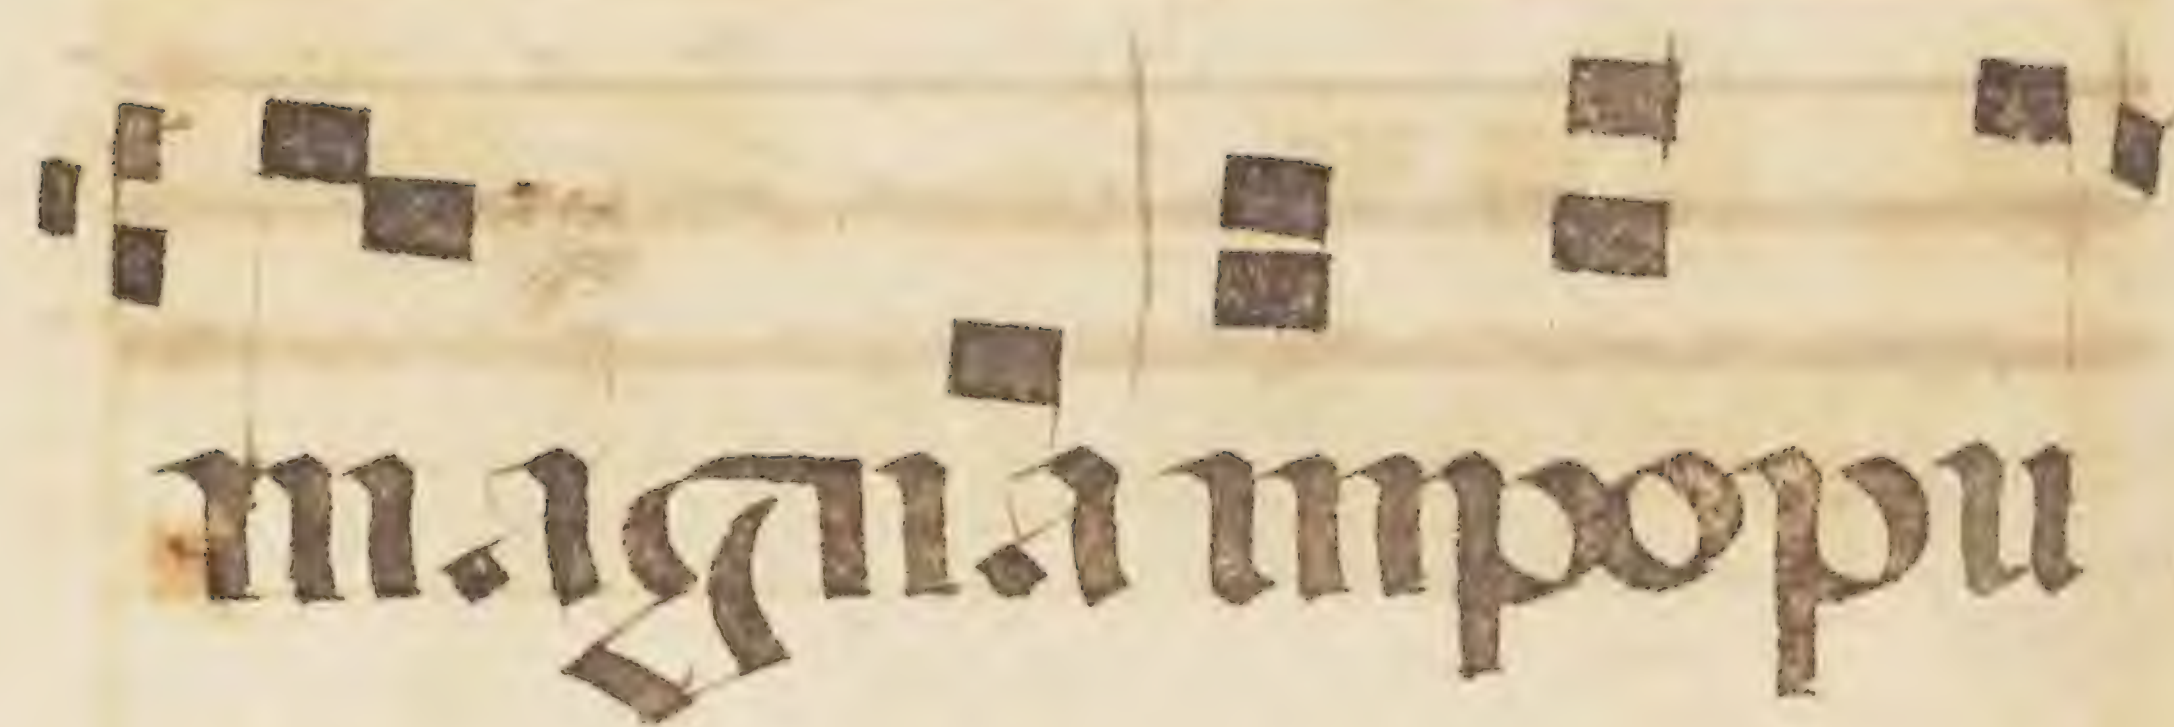 magna in popu